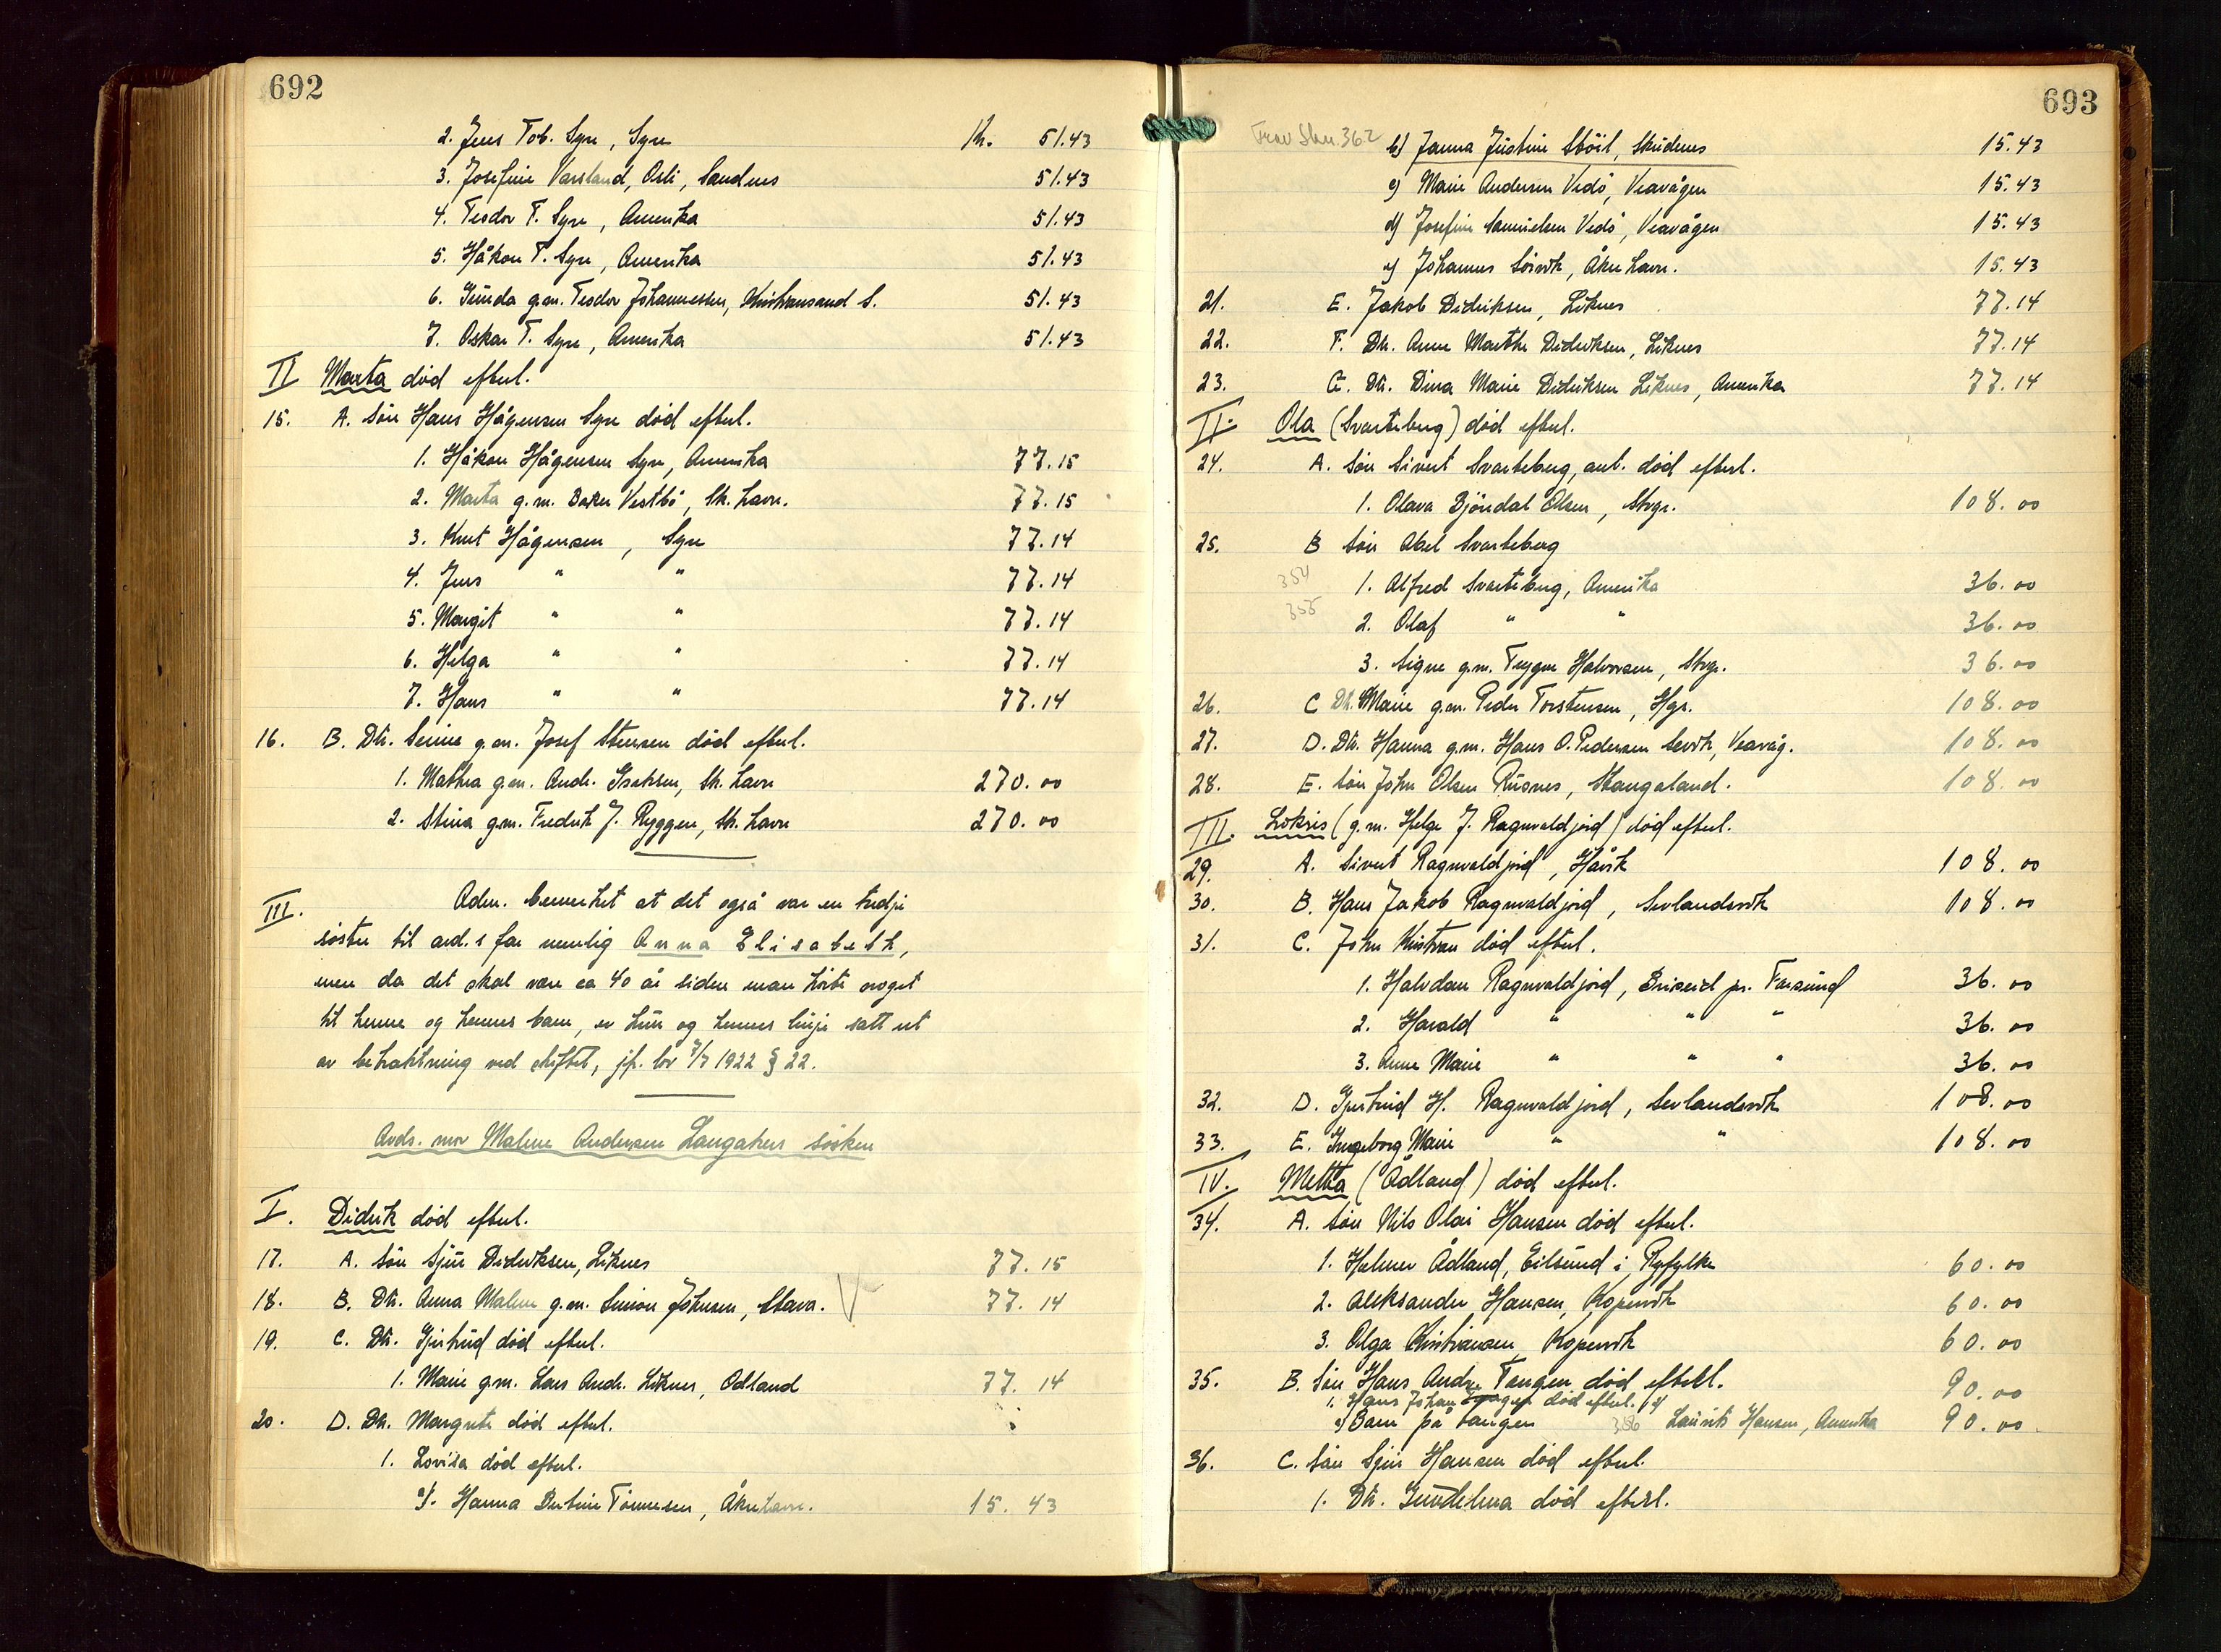 692
2. Jens Tob. Syre, Syre Kr. 51.43
3. Josefine Varsland, Osli, Sandnes 51.43
4. Teodor T. Syre, Amerika 51.43
5. Håkon T. Syre, Amerika 51.43
6. Gunda g.m. Teodor Johannessen, Kristiansand S. 51.43
7. Oskar T. Syre, Amerika 51.43
II Marta død efterl.
15. A. Søn Hans Hågensen Syre død efterl.
1. Håkon Hågensen Syre, Amerika 77.15
2. Marta g.m. Baker Vestbö, Sk.havn. 77.15
3. Knut Hågensen, Syre 77.14
4. Jens " " 77.14
5. Margit " " 77.14
6. Helga " " 77.14
7. Hans " " 77.14
16. B. Dtr. Serine g.m. Josef Stensen død efterl.
1. Mathea g.m. Andr. Isaksen, Sk.havn 270.00
2. Stina g.m. Fredrik J. Ryggen, Sk.havn 270.00
III. Adm. bemerket at det også var en tredje
søster til avd.s far nemlig Anna Elisabeth,
men da det skal være ca 40 år siden man hørte noget
til henne og hennes barn, er hun og hennes linje satt ut
av betraktning ved skiftet, jfr. lov 7/7 1922 § 22.
Avds. mor Malene Andersen Langåkers søsken
I. Didrik død efterl.
17. A. Søn Sjur Didriksen, Liknes 77.15
18. B. Dtr. Anna Malene g.m. Simon Johnsen, Stava. 77.14
19. C. Dtr. Gjertrud død efterl.
1. Marie g.m. Lars Andr. Liknes, Ådland 77.14
20. D. Dtr. Margrete død efterl.
1. Lovisa død efterl.
a). Hanna Bertine Tønnesen, Åkrehavn. 15.43
693
362 b) Janna Justine Stöil, Skudenes 15.43
c) Marie Andersen Vedö, Veavågen 15.43
d) Josefine Samuelsen Vedö, Veavågen 15.43
e) Johannes Sörvik, Åkrehavn. 15.43
21. E. Jakob Didriksen, Liknes 77.14
22. F. Dtr. Anne Marthe Didriksen, Liknes 77.14
23. G. Dtr. Dina Marie Didriksen Liknes, Amerika 77.14
II. Ola (Svarteberg) død efterl.
24. A. Søn Sivert Svarteberg, ant. død efterl.
1. Olava Bjöndal Olsen, Stvgr. 108.00
25. B Søn Abel Svarteberg
354 1. Alfred Svarteberg, Amerika 36.00
355 2. Olaf " " 36.00
3. Signe g.m. Trygve Halvorsen, Stvgr. 36.00
26. C Dtr. Marie g.m. Peder Torstensen, Hgs. 108.00
27. D. Dtr. Hanna g.m. Hans O. Pedersen Sevik, Veavåg. 108.00
28. E. Søn John Olsen Rusnes, Stangaland. 108.00
III. Lokris (g.m. Helge J. Ragnvaldjord) død efterl.
29. A. Sivert Ragnvaldjord, Håvik 108.00
30. B. Hans Jakob Ragnvaldjord, Sevlandsvik 108.00
31. C. John Kristian død efterl.
1. Halvdan Ragnvaldjord, Briseid pr. Farsund 36.00
2. Harald " " " 36.00
3. Anne Marie " " " 36.00
32. D. Gjertrud H. Ragnvaldjord, Sevlandsvik 108.00
33. E. Ingeborg Marie " " 108.00
IV. Metta (Ådland) død efterl.
34. A. Søn Nils Olai Hansen død efterl.
1. Helmer Ådland, Eilsund i Ryfylke 60.00
2. Aleksander Hansen, Kopervik 60.00
3. Olga Kristiansen, Kopervik 60.00
35. B. Søn Hans Andr. Tangen død efterl. 90.00
1. Hans Johan død efterl.
a) Barn på Tangen 356 Laurits Hansen, Amerika 90.00
36. C. Søn Sjur Hansen død efterl.
1. Dtr. død efterl.